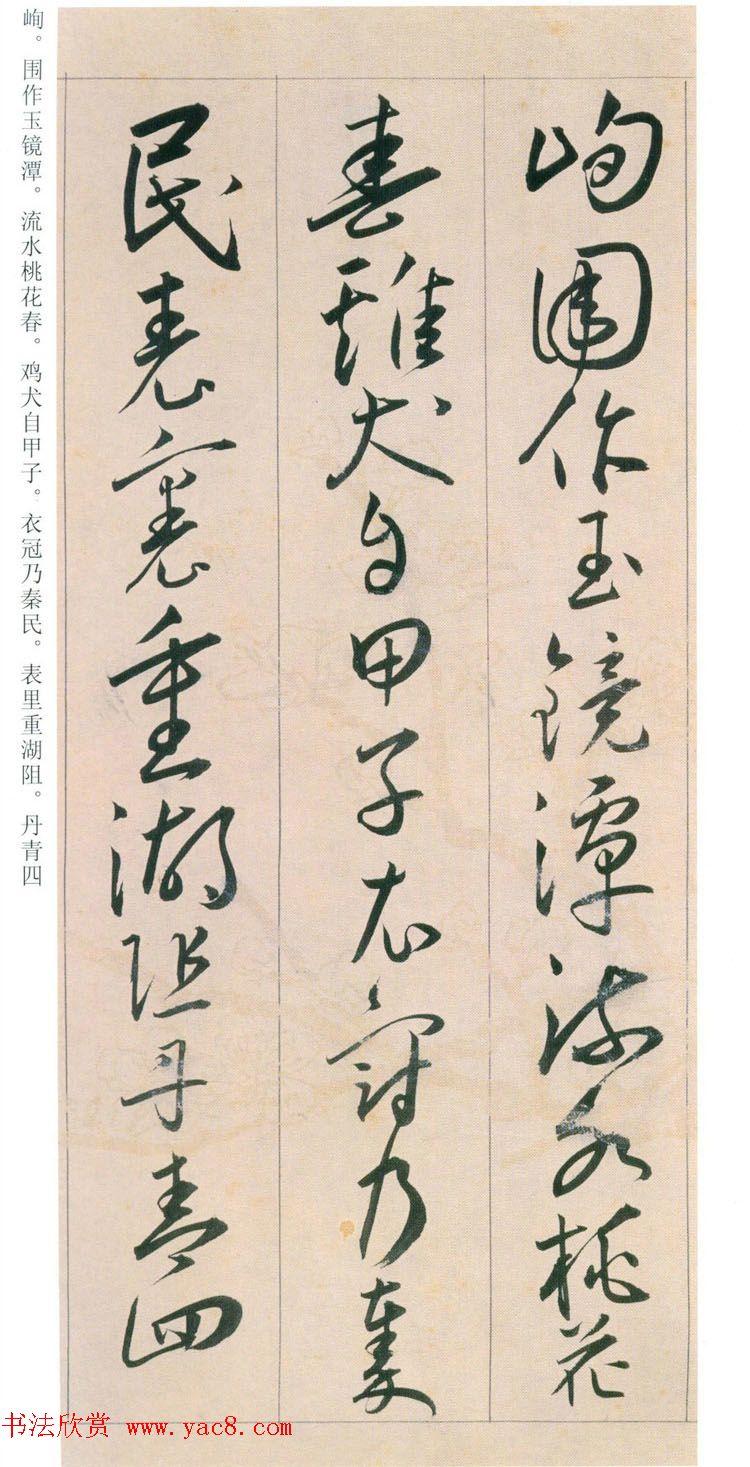 峋围作玉镜潭流水桃花
春雞犬自甲子衣冠乃秦
民表裏重湖阻丹青四
峋。围作玉镜潭。流水桃花春。鸡犬自甲子。衣冠乃秦民。表里重湖阻。丹青四
书法欣赏 www.yac8.com